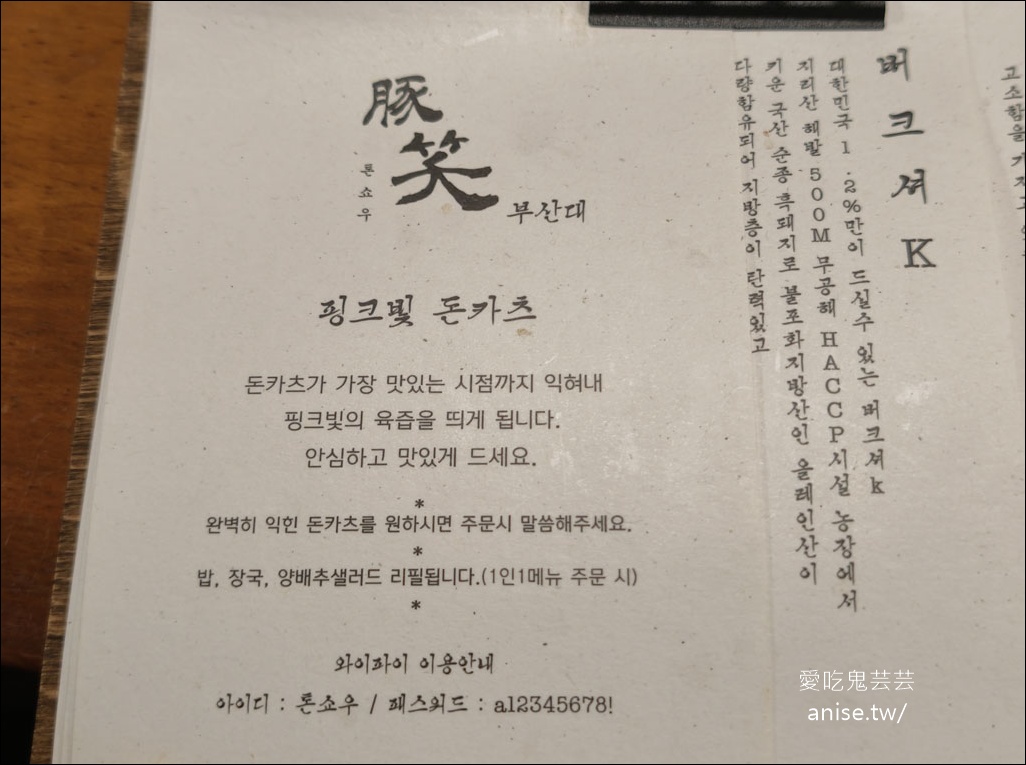 豚
笑
톤쇼우
부산대
핑크빛 돈카츠
돈카츠가 가장 맛있는 시점까지 익혀내
핑크빛의 육즙을 띄게 됩니다.
안심하고 맛있게 드세요.
*
완벽히 익힌 돈카츠를 원하시면 주문시 말씀해주세요.
*
밥, 장국, 양배추샐러드 리필됩니다.(1인1메뉴 주문 시)
*
와이파이 이용안내
아이디 : 톤쇼우 / 패스워드 : a12345678!
버크셔 K
대한민국 1.2%만이 드실수 있는 버크셔k
지리산 해발 500M 무공해 HACCP시설 농장에서
키운 국산 순종 흑돼지로 불포화지방산인 올레인산이
다량함유되어 지방층이 탄력있고
고소함을
愛吃鬼芸芸
anise.tw/